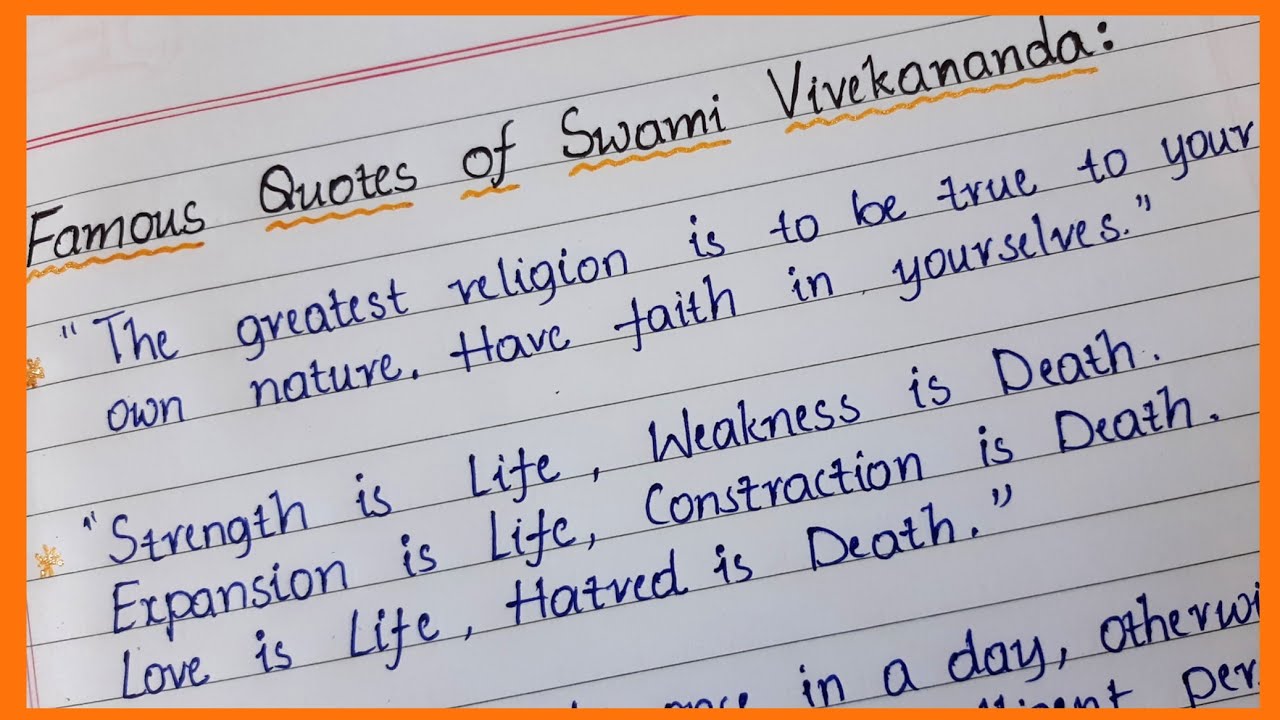 Famous Quotes of Swami Vivekananda:
"The greatest religion is to be true to your
own nature. Have faith in yourselves."
"Strength is Life, Weakness is Death.
Expansion is Life, Constraction is Death.
Love is Life, Hatred is Death."
in a day, otherwi